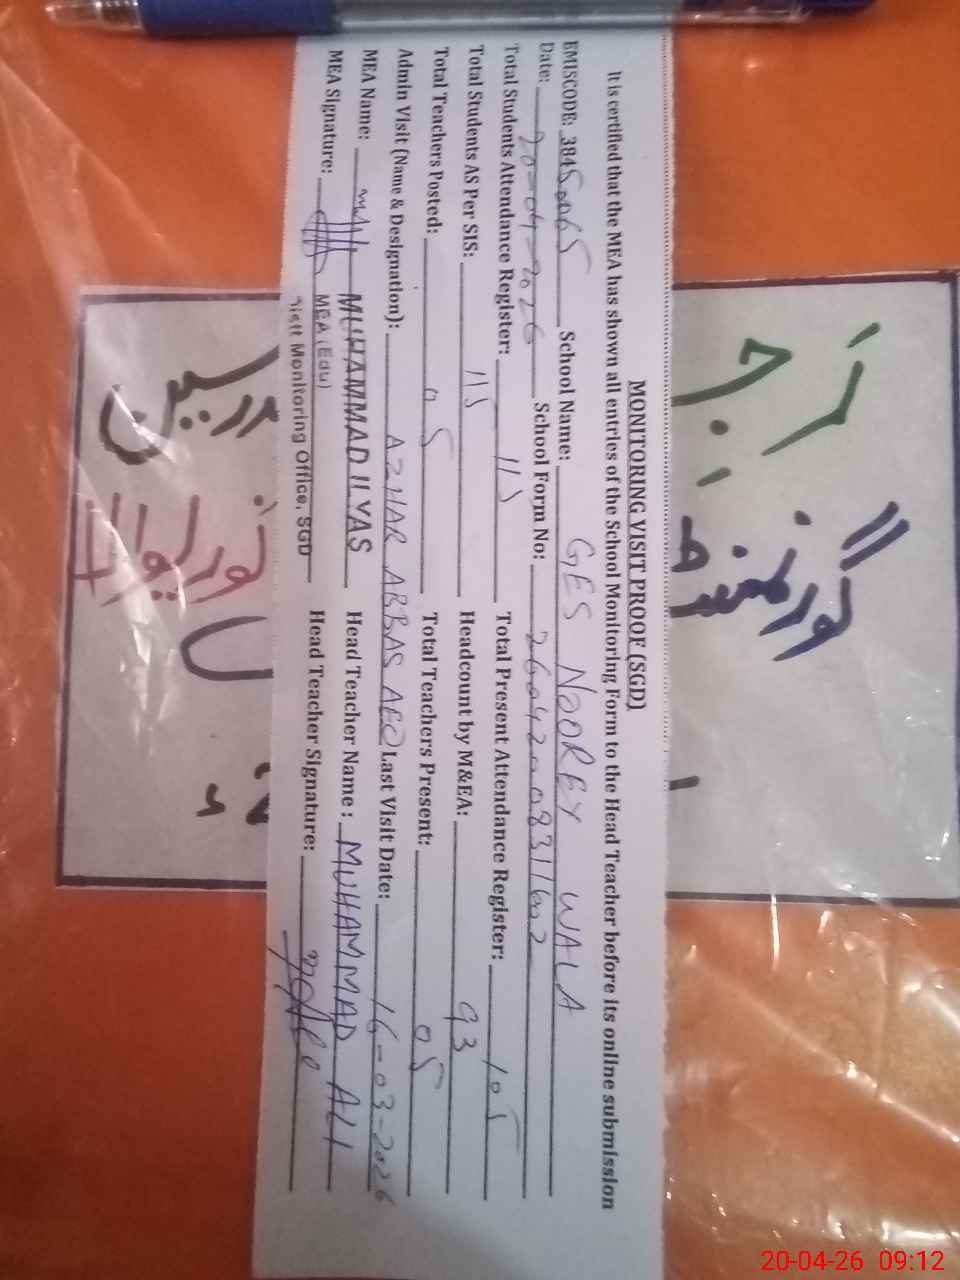 MONITORING VISIT PROOF (SGD)
It is certified that the MEA has shown all entries of the School Monitoring Form to the Head Teacher before its online submission
EMISCODE: 38450065 School Name: GES NOOREY WALA
Date: 20-04-2026 School Form No: 2604200831602
Total Students Attendance Register: 115 Total Present Attendance Register: 105
Total Students AS Per SIS: 115 Headcount by M&EA: 93
Total Teachers Posted: 05 Total Teachers Present: 05
Admin Visit (Name & Designation): AZHAR ABBAS AEO Last Visit Date: 16-03-2026
MEA Name: MUHAMMAD ILYAS Head Teacher Name: MUHAMMAD ALI
MEA Signature: Head Teacher Signature:
MEA (Edu)
Monitoring Office, SGD
گورنمنٹ
20-04-26 09:12